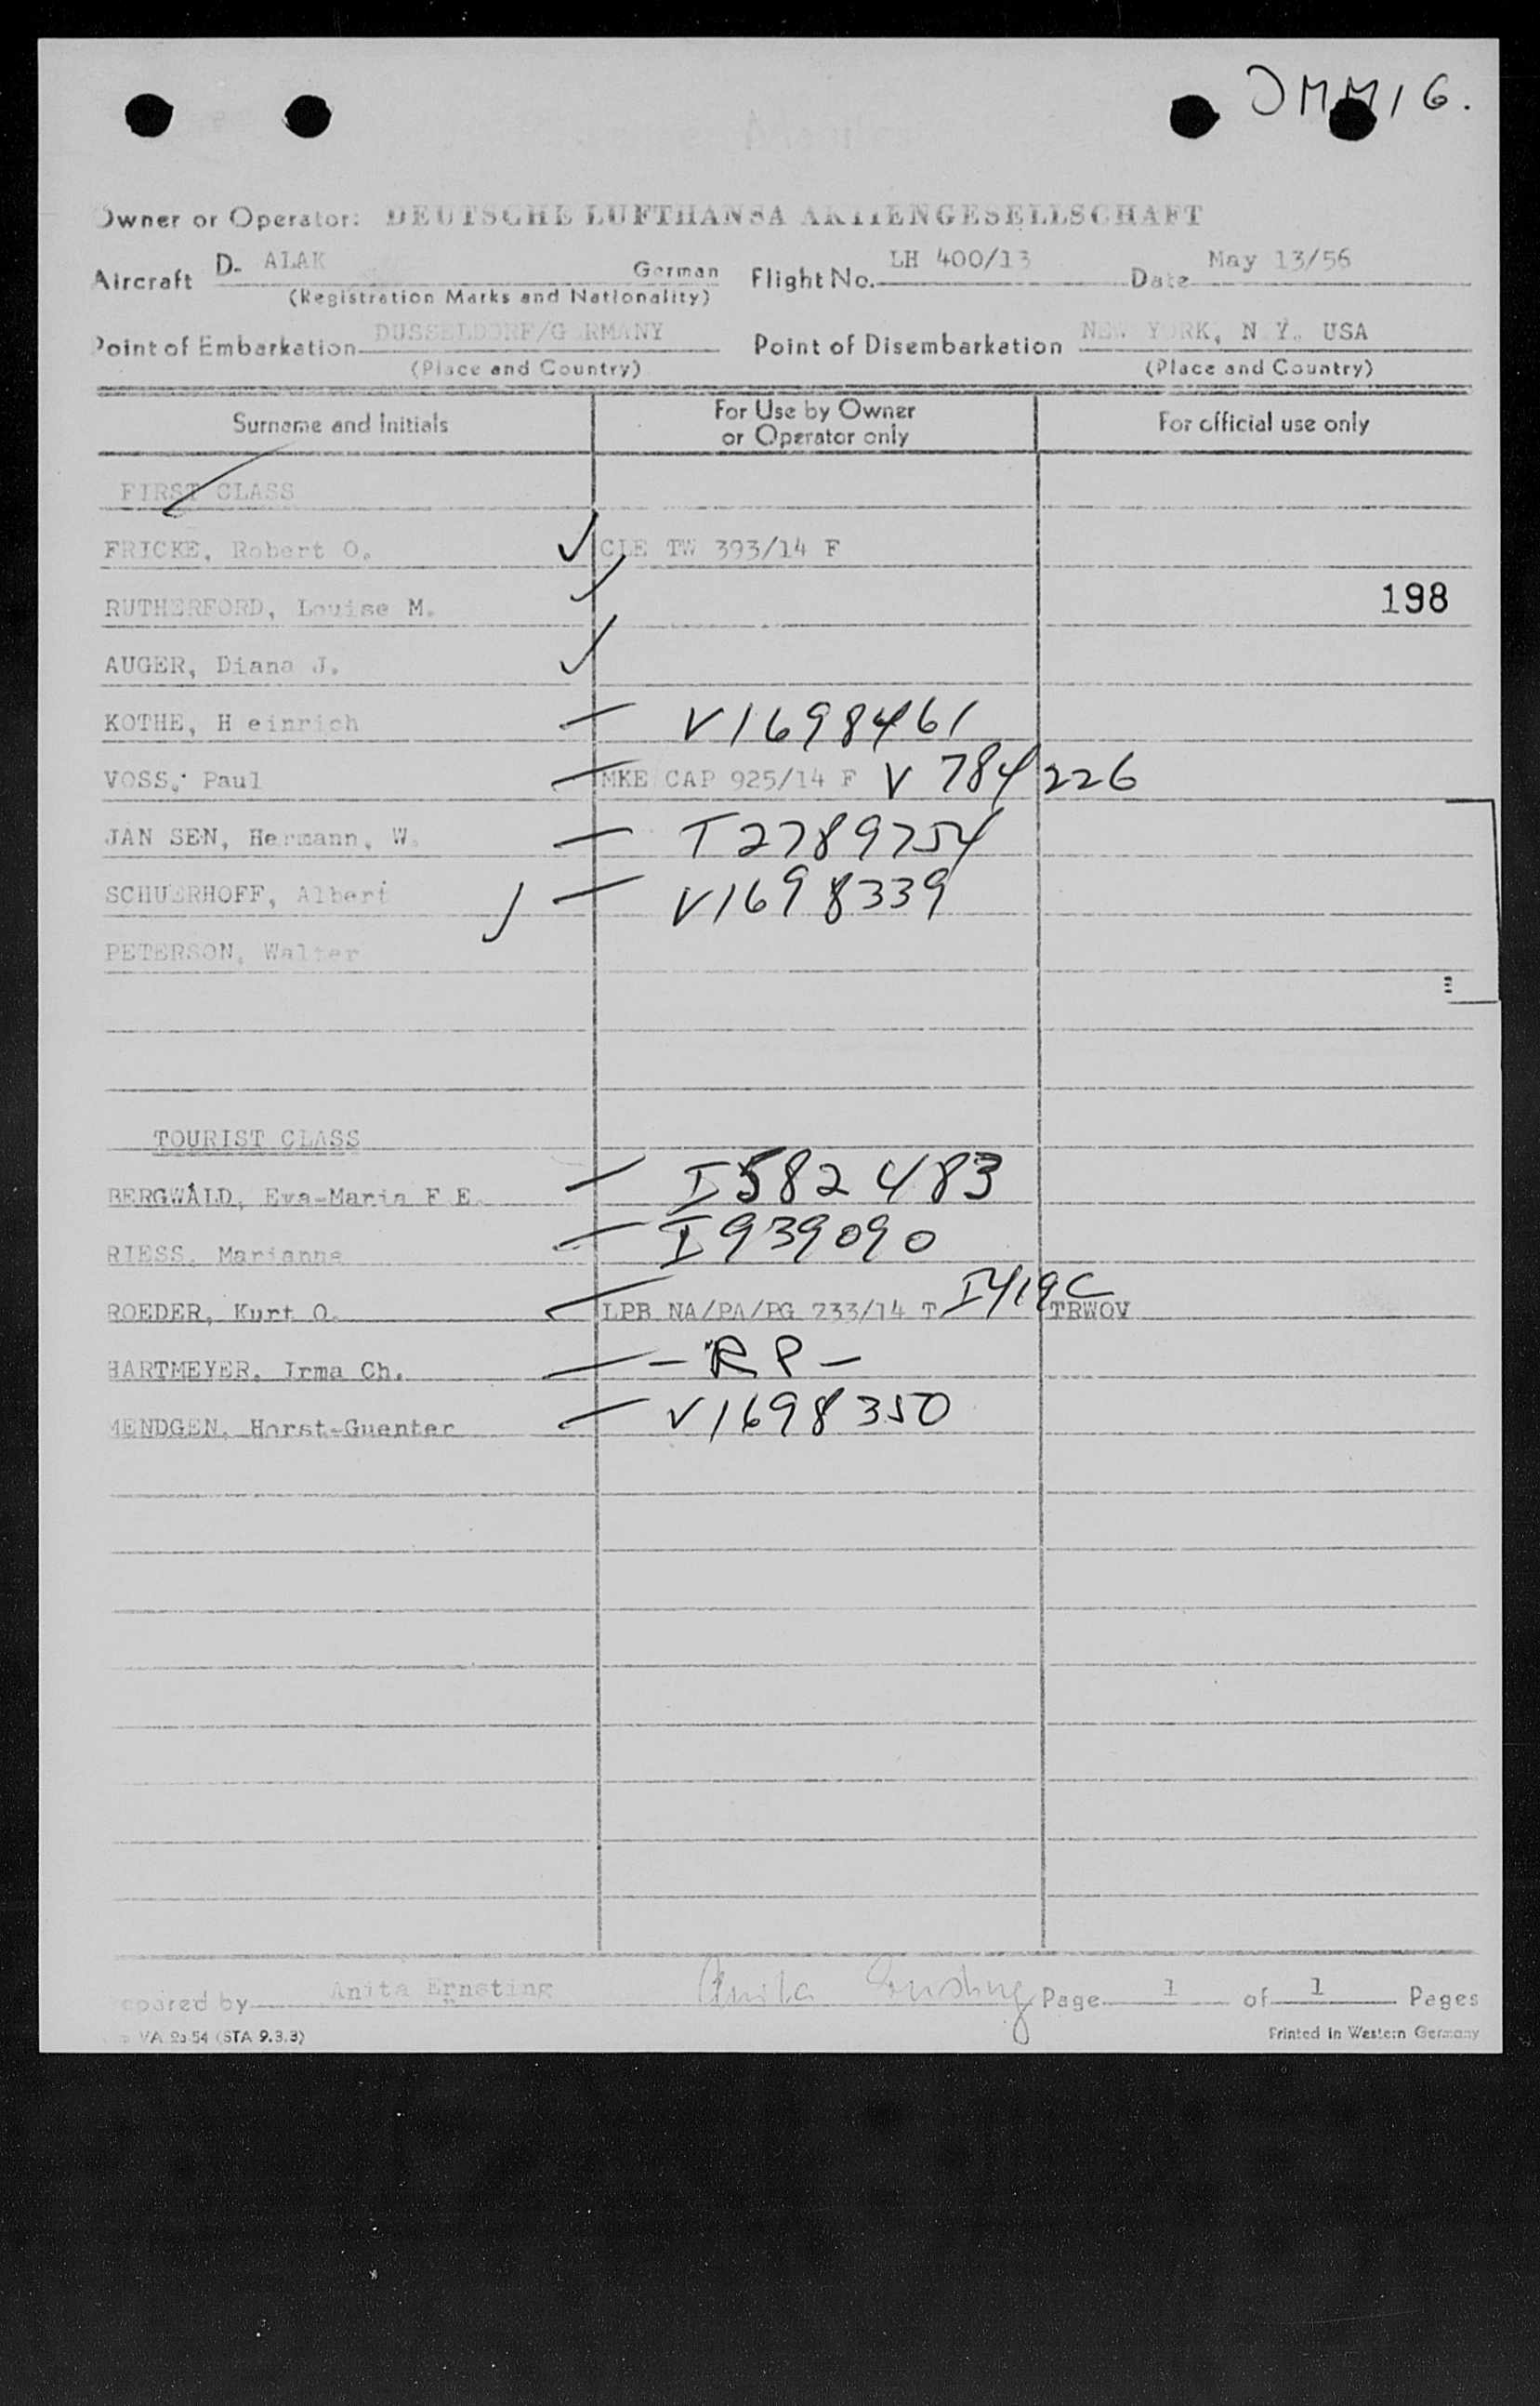 Owner or Operator: DEUTSCHE LUFTHANSA AKTIENGESELLSCHAFT
Aircraft D- ALAK German Flight No. LH 400/13 Date May 13/56
(Registration Marks and Nationality)
Point of Embarkation DUSSELDORF/GERMANY Point of Disembarkation NEW YORK, N.Y. USA
(Place and Country) (Place and Country)
Surname and Initials For Use by Owner or Operator only For official use only
FIRST CLASS
FRICKE, Robert O. CLE TW 393/14 F
RUTHERFORD, Louise M. 198
AUGER, Diana J.
KOTHE, H einrich V1698461
VOSS, Paul MKE CAP 925/14 F V 784226
JAN SEN, Hermann, W. T2789754
SCHUERHOFF, Albert V1698339
PETERSON, Walter
TOURIST CLASS
BERGWALD, Eva-Maria F.E. I582483
RIESS, Marianne I939090
ROEDER, Kurt O. LPB NA/PA/PG 233/14 T I419C TRWOV
HARTMEYER, Irma Ch. - RP -
MENDGEN, Horst-Guenter V1698350
Prepared by Anita Ernsting Anita Ernsting Page 1 of 1 Pages
VA 2b 54 (STA 9.3.3) Printed in Western Germany